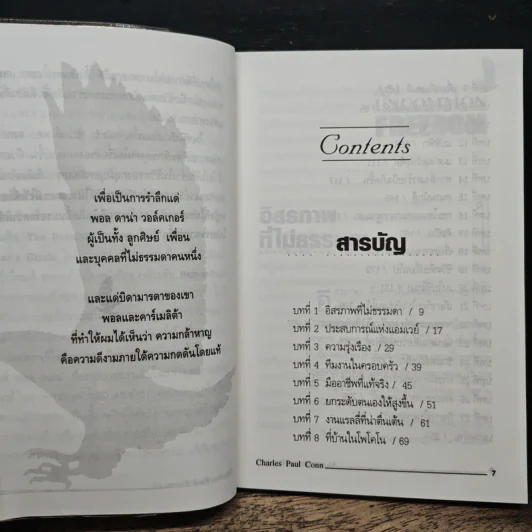 เพื่อเป็นการรำลึกแด่
พอล ดาน่า วอล์คเกอร์
ผู้เป็นทั้ง ลูกศิษย์ เพื่อน
และบุคคลที่ไม่ธรรมดาคนหนึ่ง
และแด่บิดามารดาของเขา
พอลและคาร์เมลิต้า
ที่ทำให้ผมได้เห็นว่า ความกล้าหาญ
คือความดีงามภายใต้ความกดดันโดยแท้
Contents
สารบัญ
บทที่ 1 อิสรภาพที่ไม่ธรรมดา / 9
บทที่ 2 ประสบการณ์แห่งแอมเวย์ / 17
บทที่ 3 ความรุ่งเรือง / 29
บทที่ 4 ทีมงานในครอบครัว / 39
บทที่ 5 มืออาชีพที่แท้จริง / 45
บทที่ 6 ยกระดับตนเองให้สูงขึ้น / 51
บทที่ 7 งานแรลลี่ที่น่าตื่นเต้น / 61
บทที่ 8 ที่บ้านในโพโคโน / 69
Charles Paul Conn
7